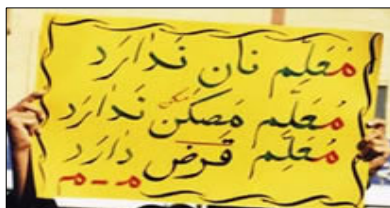 مُعَلِّم نان نَدارَد
مُعَلِّم مَسکَن نَدارَد
مُعَلِّم قَرض دارَد
م-م